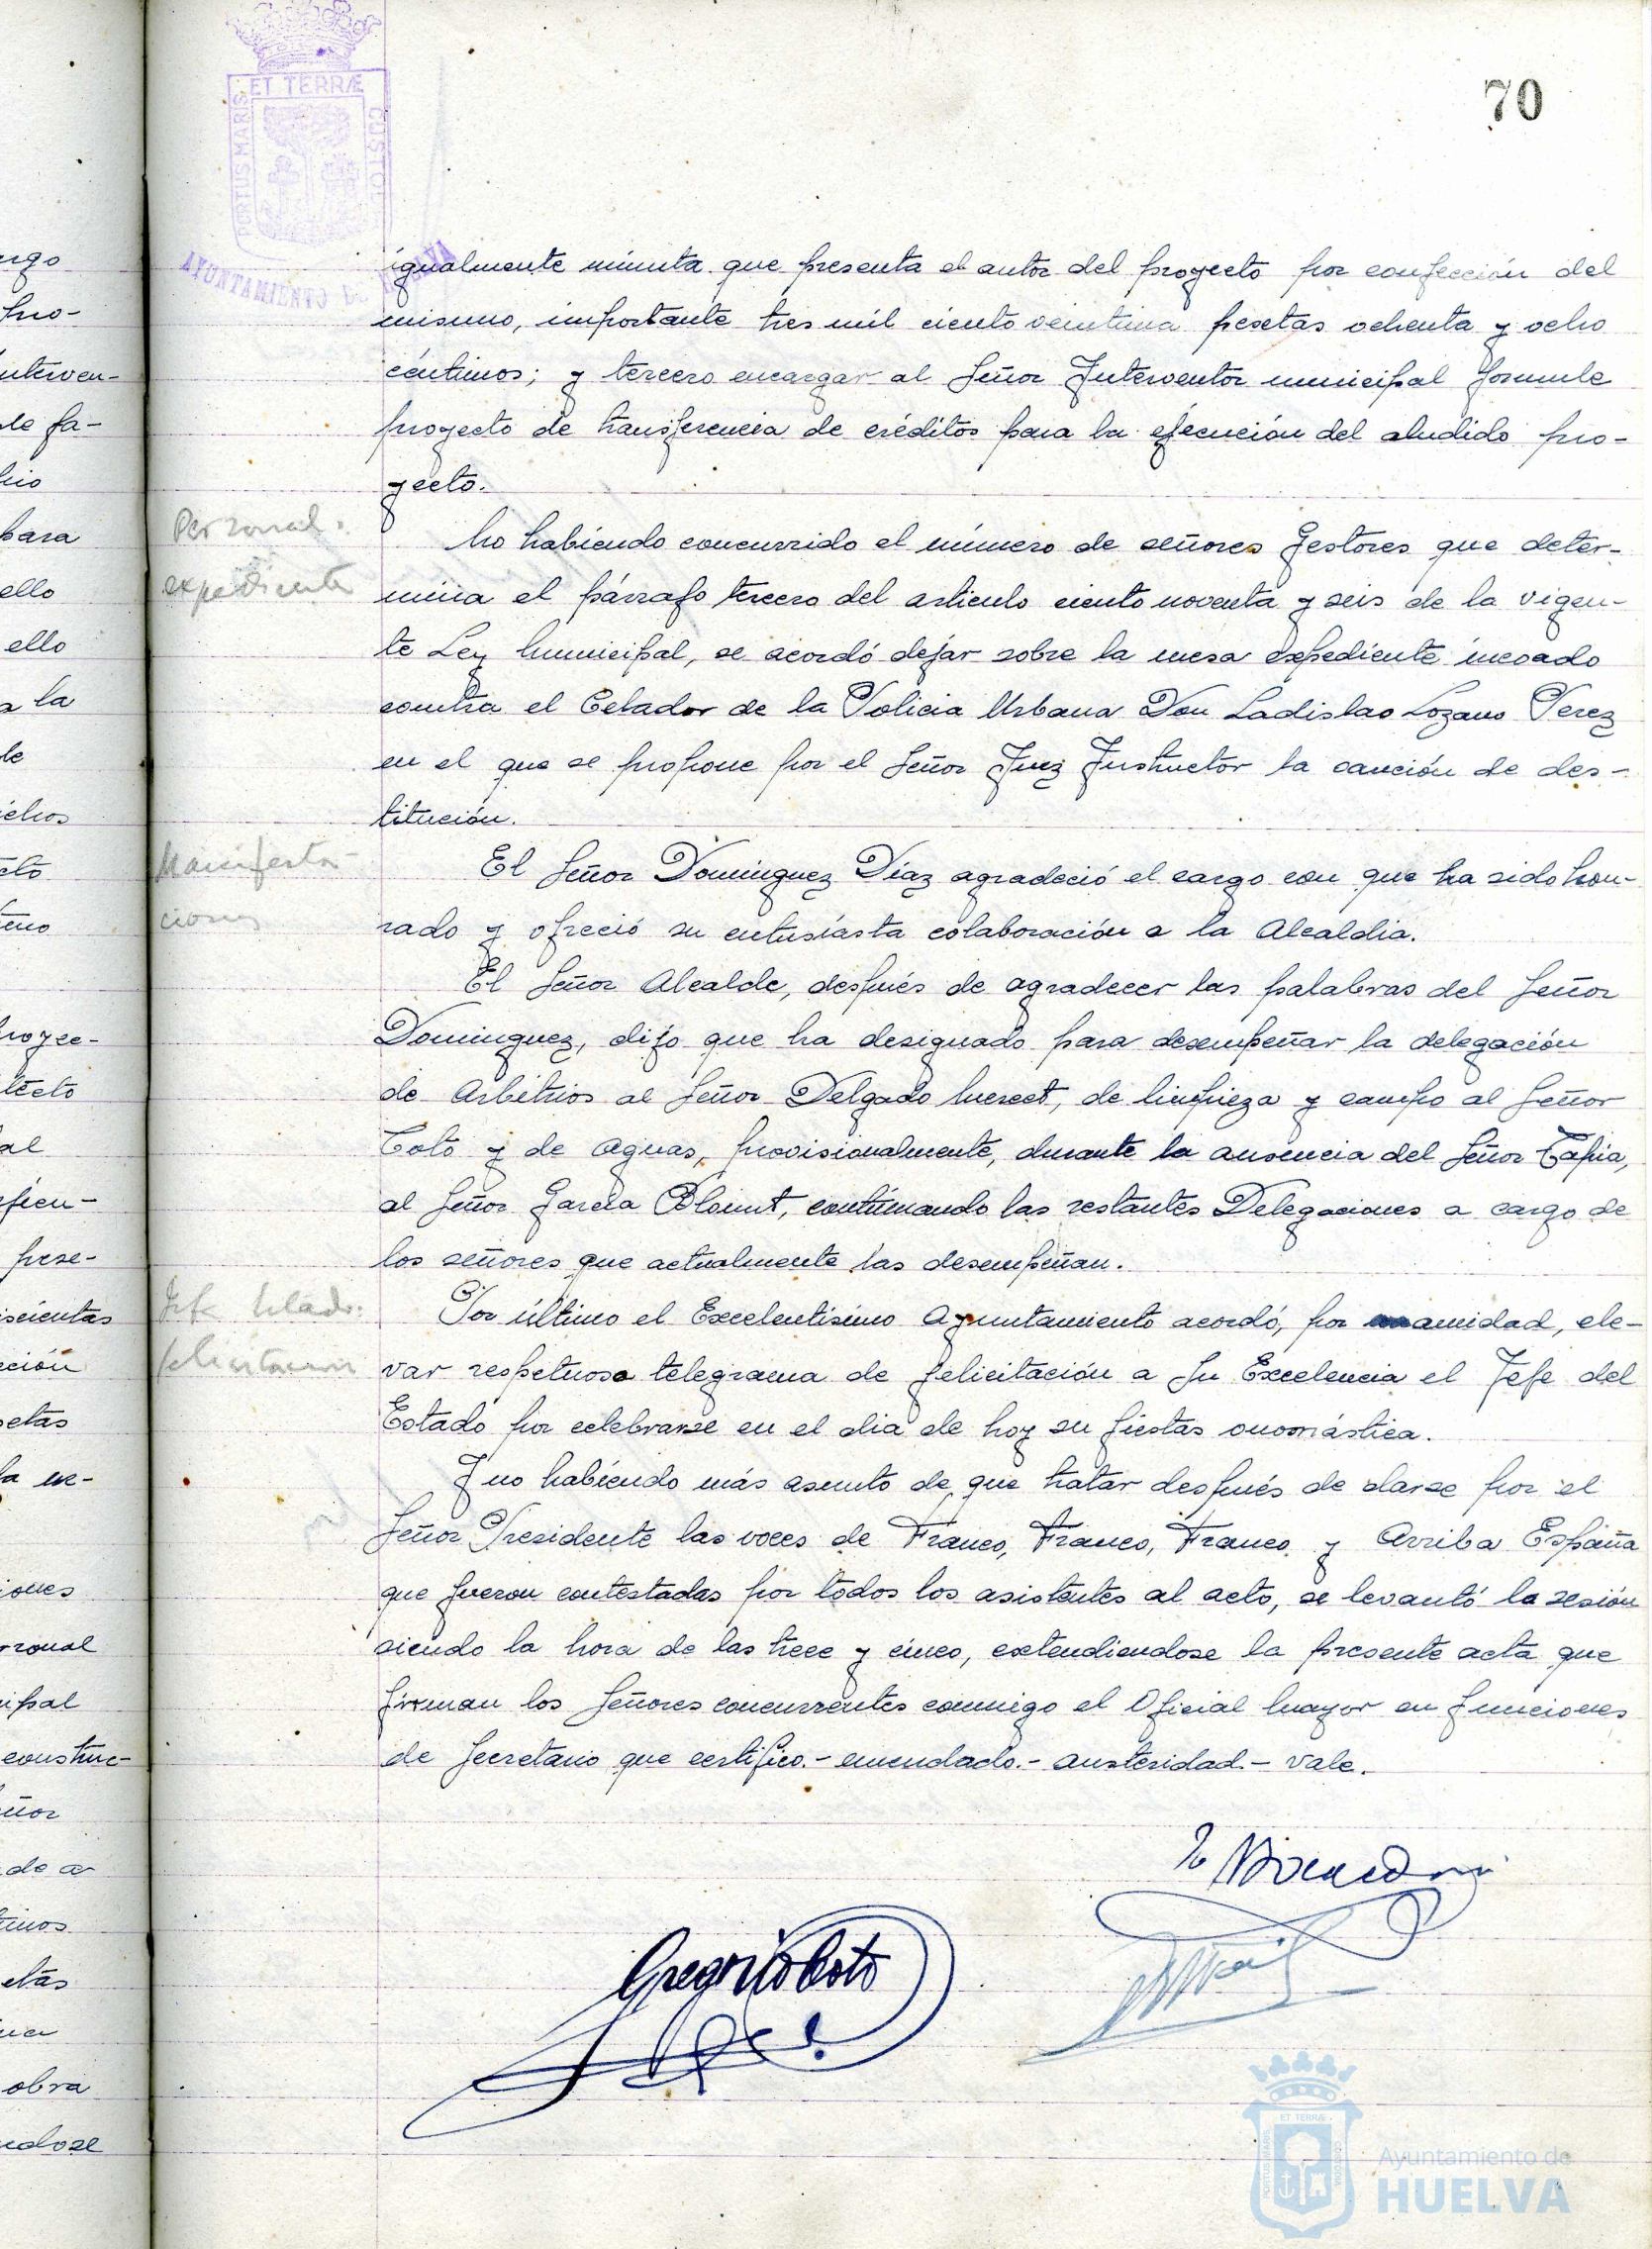 70
ET TERRÆ
PORTUS MARIS
CUSTOD
AYUNTAMIENTO DE HUELVA
igualmente minuta que presenta el autor del proyecto por confección del
mismo, importante tres mil ciento veintiuna pesetas ochenta y ocho
céntimos; y tercero encargar al Señor Interventor municipal formule
proyecto de transferencia de créditos para la ejecución del aludido pro-
yecto.
Personal.
expediente
No habiendo concurrido el número de señores Gestores que deter-
mina el párrafo tercero del articulo ciento noventa y seis de la vigen-
te Ley Municipal, se acordó dejar sobre la mesa expediente incoado
contra el Celador de la Policia Urbana Don Ladislao Lozano Perez
en el que se propone por el Señor Juez Instructor la sanción de des-
titución.
Manifesta-
ciones
El Señor Dominguez Díaz agradeció el cargo con que ha sido hon-
rado y ofreció su entusiasta colaboración a la Alcaldia.
El Señor Alcalde, después de agradecer las palabras del Señor
Dominguez, dijo que ha designado para desempeñar la delegación
de Arbitrios al Señor Delgado Merect, de limpieza y campo al Señor
Coto y de Aguas, provisionalmente, durante la ausencia del Señor Tapia,
al Señor García Blount, continuando las restantes Delegaciones a cargo de
los señores que actualmente las desempeñan.
Jefe Estado.
felicitación
Por último el Excelentísimo Ayuntamiento acordó, por unamidad, ele-
var respetuoso telegrama de felicitación a Su Excelencia el Jefe del
Estado por celebrarse en el dia de hoy su fiestas onomástica.
Y no habiendo más asunto de que tratar después de darse por el
Señor Presidente las voces de Franco, Franco, Franco y Arriba España
que fueron contestadas por todos los asistentes al acto, se levantó la sesión
siendo la hora de las trece y cinco, extendiendose la presente acta que
firman los Señores concurrentes conmigo el Oficial Mayor en funciones
de Secretario que certifico.- enmendado.- austeridad.- vale.
Gregorio Coto
ET TERRAE
PORTUS MARIS
CUSTODIA
Ayuntamiento de
HUELVA